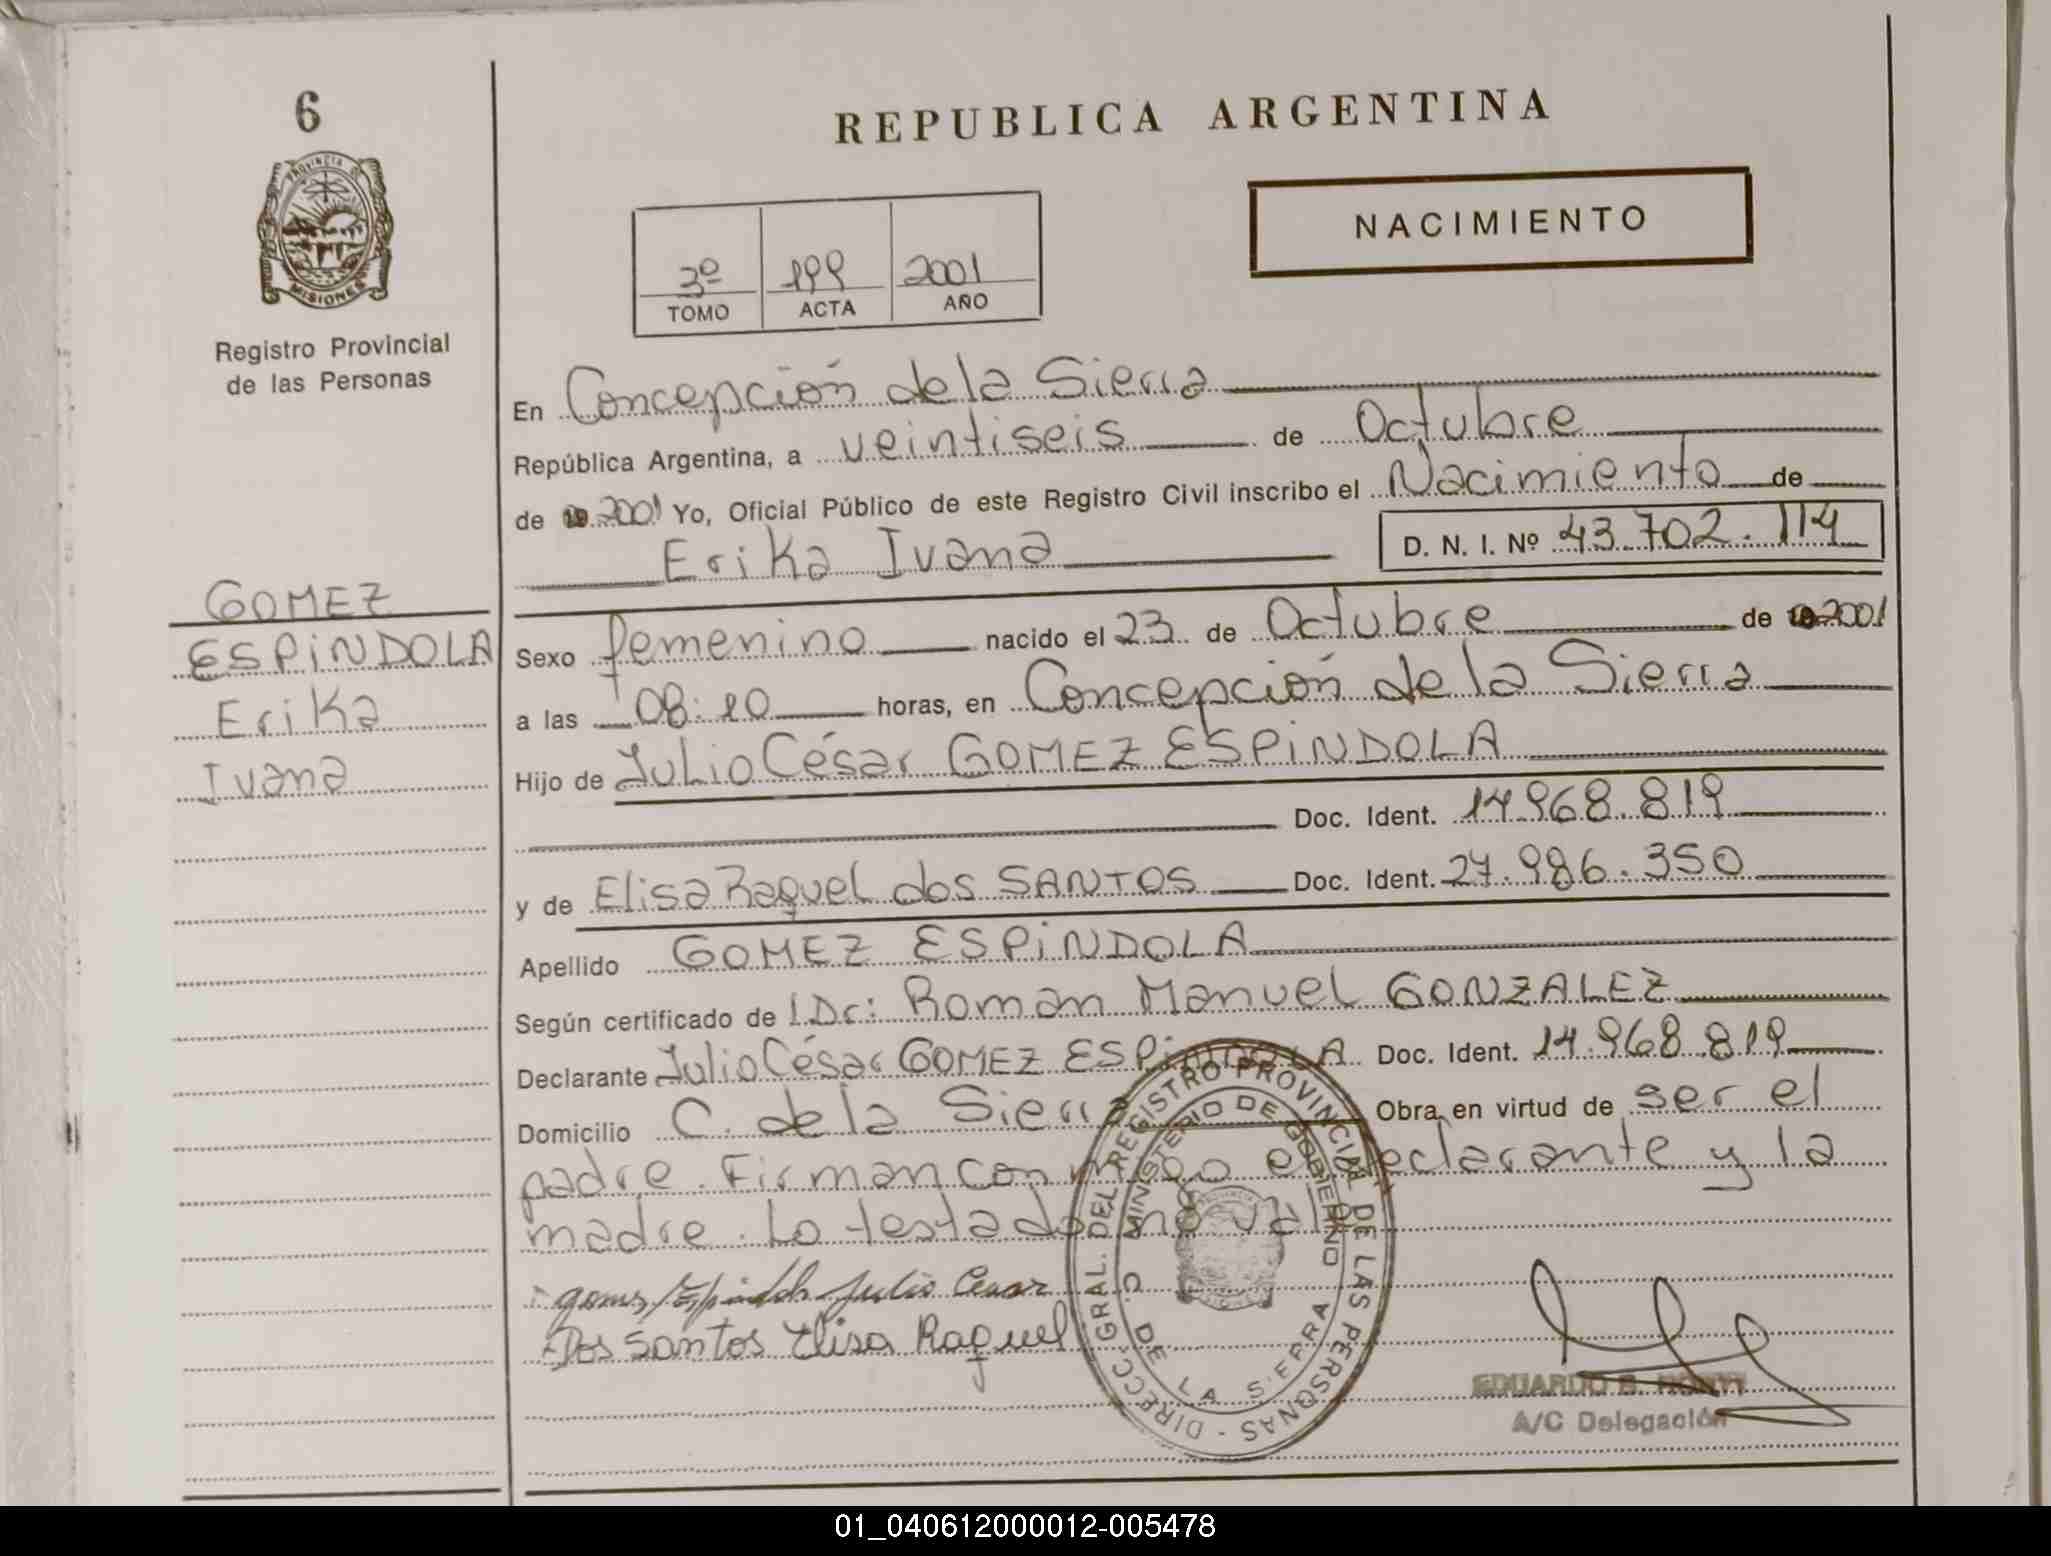 6
PROVINCIA DE
MISIONES
Registro Provincial
de las Personas
GOMEZ
ESPINDOLA
Erika
Ivana
REPUBLICA ARGENTINA
NACIMIENTO
3º 199 2001
TOMO ACTA AÑO
En Concepción de la Sierra
República Argentina, a veintiseis de Octubre
de 19 2001 Yo, Oficial Público de este Registro Civil inscribo el Nacimiento de
Erika Ivana D. N. I. Nº 43.702.114
Sexo femenino nacido el 23 de Octubre de 19 2001
a las 08:10 horas, en Concepción de la Sierra
Hijo de Julio César GOMEZ ESPINDOLA
Doc. Ident. 14.968.819
y de Elisa Raquel dos SANTOS Doc. Ident. 27.986.350
Apellido GOMEZ ESPINDOLA
Según certificado de l Dr: Roman Manuel GONZALEZ
Declarante Julio César GOMEZ ESPINDOLA Doc. Ident. 14.968.819
Domicilio C. de la Sierra Obra en virtud de ser el
padre. Firman conmigo el declarante y la
madre. Lo testado no vale
Gomez Espindola Julio Cesar
Dos Santos Elisa Raquel
DIRECC. GRAL. DEL REGISTRO PROVINCIAL DE LAS PERSONAS
MINISTERIO DE GOBIERNO
C. DE LA SIERRA
EDUARDO
A/C Delegación
01_040612000012-005478